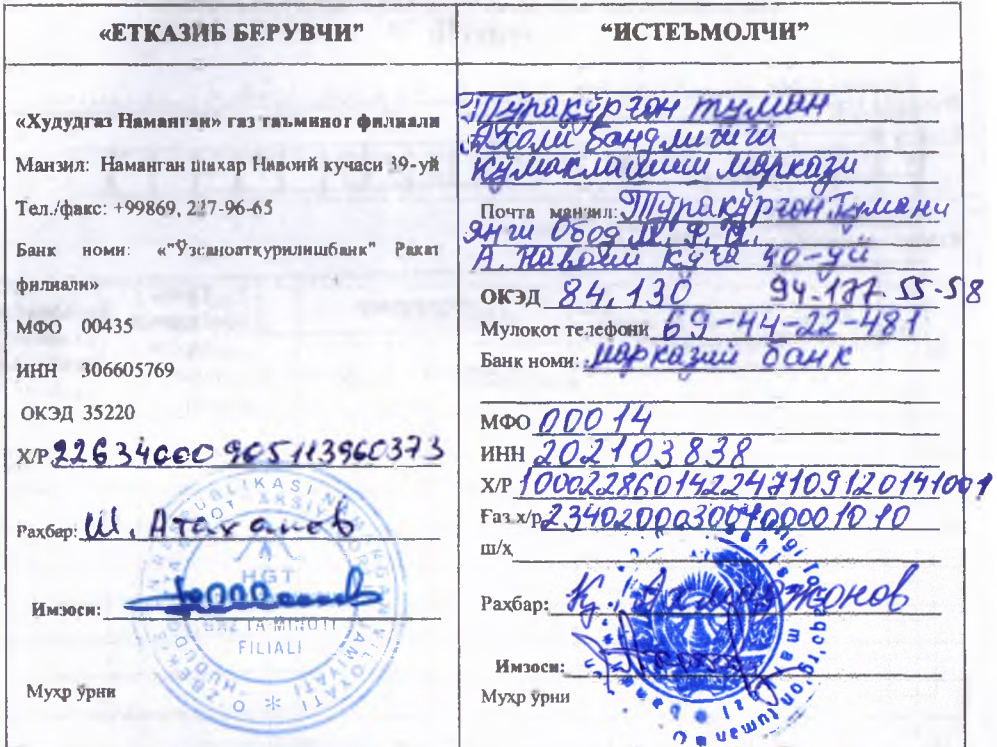 «ЕТКАЗИБ БЕРУВЧИ”
«Худудгаз Наманган» газ таъминот филиали
Манзил: Наманган шахар Навоий кучаси 39-уй
Тел./факс: +99869, 227-96-65
Банк номи: «"Ўзсаноатқурилишбанк" Ракат
филиали»
МФО 00435
ИНН 306605769
ОКЭД 35220
Х/Р 22634000 905113960373
Раҳбар: Ш. Атаханов
Имзоси:
HGT
GAZ TA'MINOTI
FILIALI
Муҳр ўрни
“ИСТЕЪМОЛЧИ”
Тўрақўрғон туман
Аҳоли бандлигига
кўмаклашиш маркази
Почта манзил: Тўрақўрғон Тумани
Янги Обод М.Ф.Й.
А. Навоий кўча 40-уй
ОКЭД 84,130 94-177-55-58
Мулоқот телефони 69-44-22-481
Банк номи: марказий банк
МФО 00014
ИНН 202103838
Х/Р 100022860142247109120141001
Ғаз х/р 23402000300100001010
ш/х
Раҳбар: Қ. Ахмаджонов
Имзоси:
Муҳр ўрни